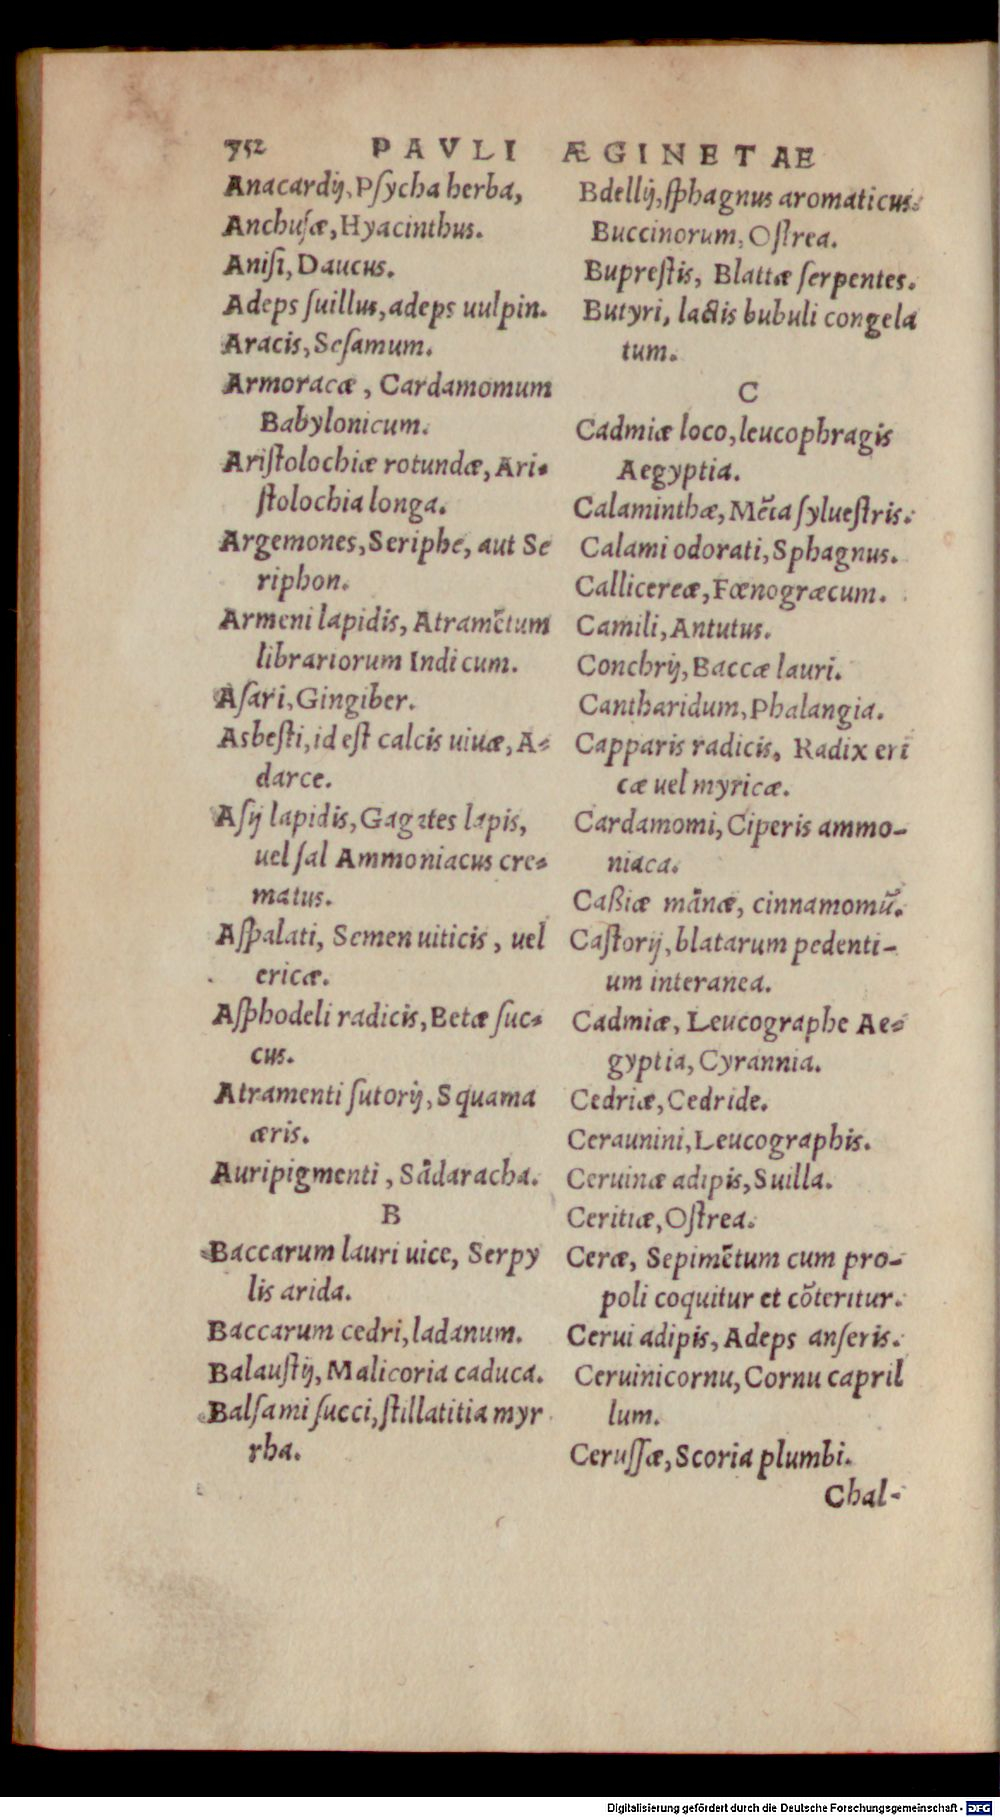 752 PAVLI ÆGINETAE
Anacardij, Pſycha herba,
Anchuſæ, Hyacinthus.
Aniſi, Daucus.
Adeps ſuillus, adeps uulpin.
Aracis, Seſamum.
Armoracæ, Cardamomum
Babylonicum.
Ariſtolochiæ rotundæ, Ari-
ſtolochia longa.
Argemones, Seriphe, aut Se
riphon.
Armeni lapidis, Atramẽtum
librariorum Indicum.
Aſari, Gingiber.
Asbeſti, id eſt calcis uiuæ, A-
darce.
Aſij lapidis, Gagates lapis,
uel ſal Ammoniacus cre-
matus.
Aſpalati, Semen uiticis, uel
ericæ.
Aſphodeli radicis, Betæ ſuc-
cus.
Atramenti ſutorij, Squama
æris.
Auripigmenti, Sãdaracha.
B
Baccarum lauri uice, Serpy
lis arida.
Baccarum cedri, ladanum.
Balauſtij, Malicoria caduca.
Balſami ſucci, ſtillatitia myr
rha.
Bdellij, ſphagnus aromaticus.
Buccinorum, Oſtrea.
Bupreſtis, Blattæ ſerpentes.
Butyri, lactis bubuli congela
tum.
C
Cadmiæ loco, leucophragis
Aegyptia.
Calaminthæ, Mẽta ſylueſtris.
Calami odorati, Sphagnus.
Callicereæ, Fœnogræcum.
Camili, Antutus.
Conchrij, Baccæ lauri.
Cantharidum, Phalangia.
Capparis radicis, Radix eri
cæ uel myricæ.
Cardamomi, Ciperis ammo-
niaca.
Caßiæ mãnæ, cinnamomũ.
Caſtorij, blatarum pedenti-
um interanea.
Cadmiæ, Leucographe Ae-
gyptia, Cyrannia.
Cedriæ, Cedride.
Ceraunini, Leucographis.
Ceruinæ adipis, Suilla.
Ceritiæ, Oſtrea.
Ceræ, Sepimẽtum cum pro-
poli coquitur et cõteritur.
Cerui adipis, Adeps anſeris.
Ceruinicornu, Cornu capril
lum.
Ceruſſæ, Scoria plumbi.
Chal-
Digitalisierung gefördert durch die Deutsche Forschungsgemeinschaft - DFG